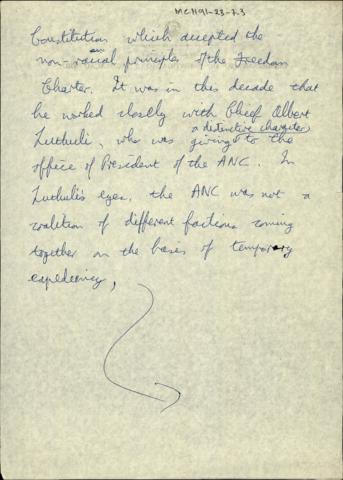 MCH91-23-7.3
Constitution which accepted the
non-racial principles of the Freedom
Charter. It was in this decade that
he worked closely with Chief Albert
Luthuli, who was giving a distinctive character to the
office of President of the ANC. In
Luthuli's eyes, the ANC was not a
coalition of different factions coming
together on the bases of temporary
expediency,